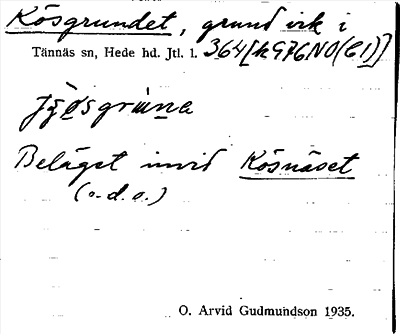 Kösgrundet, grund vik i
Tännäs sn, Hede hd. Jtl. l. 364[k976NO(C1)]
Beläget invid Kösnäset
(o.d.o.)
O. Arvid Gudmundson 1935.